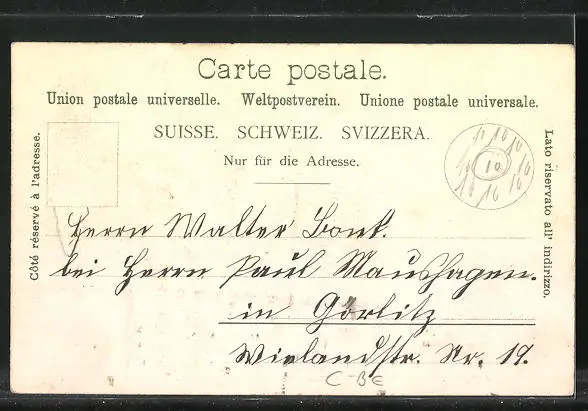 Carte postale.
Union postale universelle. Weltpostverein. Unione postale universale.
SUISSE. SCHWEIZ. SVIZZERA.
Nur für die Adresse.
Côté réservé à l'adresse.
Lato riservato all' indirizzo.
10
16 16 16 16 16 16
Herrn Walter Bonk.
bei Herrn Paul Maushagen.
in Görlitz
Wielandstr. Nr. 19.
C-BE